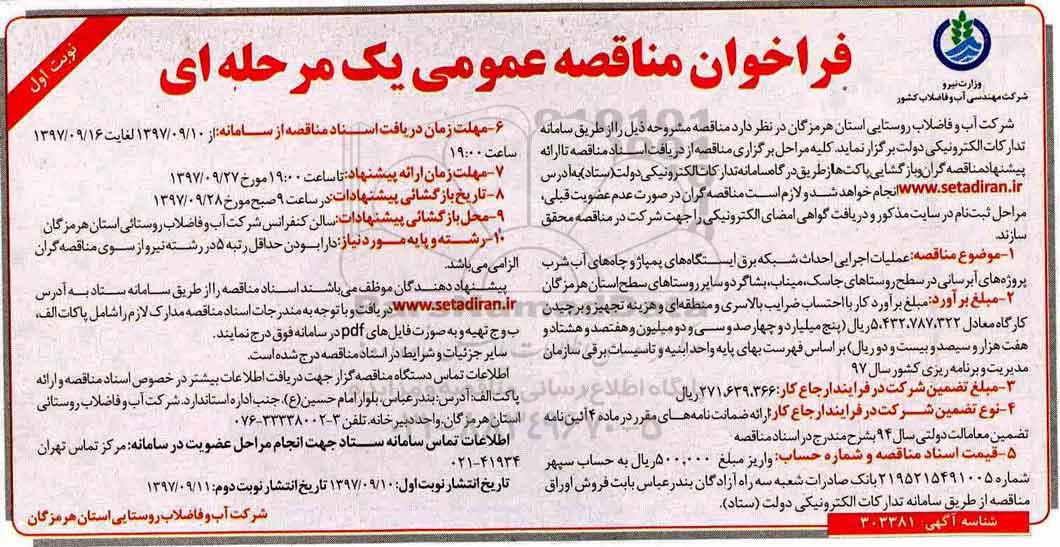 نوبت اول
فراخوان مناقصه عمومی یک مرحله ای
وزارت نیرو
شرکت مهندسی آب و فاضلاب کشور
شرکت آب و فاضلاب روستایی استان هرمزگان در نظر دارد مناقصه مشروحه ذیل را از طریق سامانه
تدارکات الکترونیکی دولت برگزار نماید. کلیه مراحل برگزاری مناقصه از دریافت اسناد مناقصه تا ارائه
پیشنهاد مناقصه گران و بازگشایی پاکت ها از طریق درگاه سامانه تدارکات الکترونیکی دولت (ستاد) به آدرس
www.setadiran.ir انجام خواهد شد و لازم است مناقصه گران در صورت عدم عضویت قبلی،
مراحل ثبت نام در سایت مذکور و دریافت گواهی امضای الکترونیکی را جهت شرکت در مناقصه محقق
سازند.
۱-موضوع مناقصه: عملیات اجرایی احداث شبکه برق ایستگاه های پمپاژ و چاه های آب شرب
پروژه های آبرسانی در سطح روستاهای جاسک، میناب، بشاگرد و سایر روستاهای سطح استان هرمزگان
۲-مبلغ برآورد: مبلغ برآورد کار با احتساب ضرایب بالاسری و منطقه ای و هزینه تجهیز و برچیدن
کارگاه معادل ۵،۴۳۲،۷۸۷،۳۲۲ ریال (پنج میلیارد و چهارصد و سی و دو میلیون و هفتصد و هشتاد و
هفت هزار و سیصد و بیست و دو ریال) بر اساس فهرست بهای پایه واحد ابنیه و تاسیسات برقی سازمان
مدیریت و برنامه ریزی کشور سال ۹۷
۳-مبلغ تضمین شرکت در فرایند ارجاع کار: ۲۷۱،۶۳۹،۳۶۶ ریال
۴-نوع تضمین شرکت در فرایند ارجاع کار: ارائه ضمانت نامه های مقرر در ماده ۴ آئین نامه
تضمین معاملات دولتی سال ۹۴ بشرح مندرج در اسناد مناقصه
۵-قیمت اسناد مناقصه و شماره حساب: واریز مبلغ ۵۰۰،۰۰۰ ریال به حساب سپهر
شماره ۲۱۹۵۲۱۵۴۹۱۰۰۵ بانک صادرات شعبه سه راه آزادگان بندرعباس بابت فروش اوراق
مناقصه از طریق سامانه تدارکات الکترونیکی دولت (ستاد).
۶-مهلت زمان دریافت اسناد مناقصه از سامانه: از ۱۳۹۷/۰۹/۱۰ لغایت ۱۳۹۷/۰۹/۱۶
ساعت ۱۹:۰۰
۷-مهلت زمان ارائه پیشنهاد: تا ساعت ۱۹:۰۰ مورخ ۱۳۹۷/۰۹/۲۷
۸-تاریخ بازگشائی پیشنهادات: در ساعت ۹ صبح مورخ ۱۳۹۷/۰۹/۲۸
۹-محل بازگشائی پیشنهادات: سالن کنفرانس شرکت آب و فاضلاب روستائی استان هرمزگان
۱۰-رشته و پایه مورد نیاز: دارا بودن حداقل رتبه ۵ در رشته نیرو از سوی مناقصه گران
الزامی می باشد.
پیشنهاد دهندگان موظف می باشند اسناد مناقصه را از طریق سامانه ستاد به آدرس
www.setadiran.ir دریافت و با توجه به مندرجات اسناد مناقصه مدارک لازم را شامل پاکات الف،
ب و ج تهیه و به صورت فایل های pdf در سامانه فوق درج نمایند.
سایر جزئیات و شرایط در اسناد مناقصه درج شده است.
اطلاعات تماس دستگاه مناقصه گزار جهت دریافت اطلاعات بیشتر در خصوص اسناد مناقصه و ارائه
پاکت الف: آدرس: بندرعباس، بلوار امام حسین (ع)، جنب اداره استاندارد، شرکت آب و فاضلاب روستائی
استان هرمزگان، واحد دبیرخانه، تلفن ۳-۳۳۳۳۸۰۰۲-۰۷۶
اطلاعات تماس سامانه ستاد جهت انجام مراحل عضویت در سامانه: مرکز تماس تهران
۰۲۱-۴۱۹۳۴
تاریخ انتشار نوبت اول: ۱۳۹۷/۰۹/۱۰ تاریخ انتشار نوبت دوم: ۱۳۹۷/۰۹/۱۱
شرکت آب و فاضلاب روستایی استان هرمزگان
شناسه آگهی: ۳۰۳۳۸۱